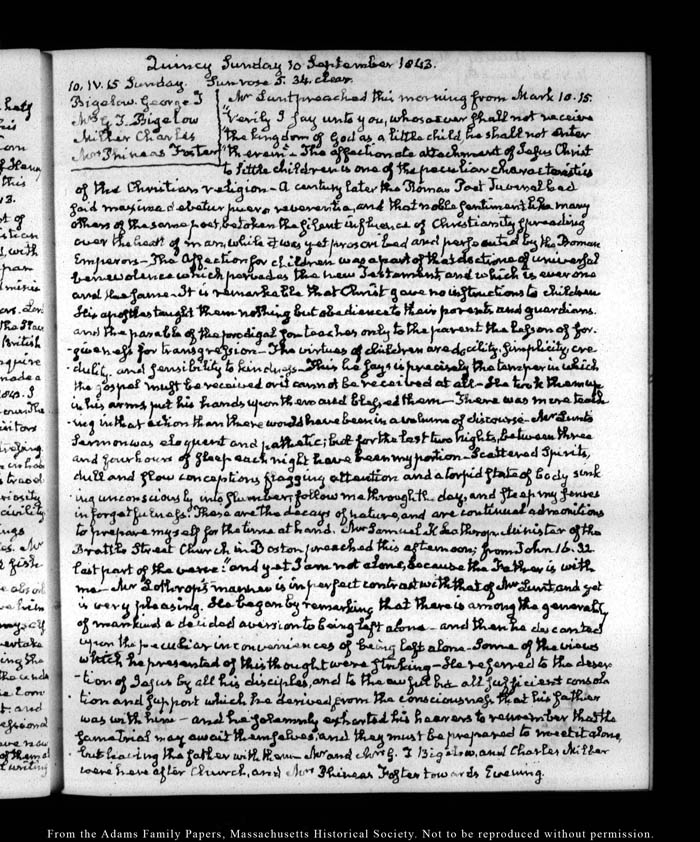 Quincy Sunday 10 September 1843.
10. IV. 15 Sunday. Sun rose 5. 34. clear.
Bigelow. George T
Mrs G. T. Bigelow
Miller Charles
Mrs Phineas Foster
Mr Lunt preached this morning from Mark 10. 15.
"Verily I say unto you, whosoever shall not receive
"the kingdom of God as a little child he shall not enter
"therein"– The affectionate attachment of Jesus Christ
to little children is one of the peculiar characteristics
of the Christian religion– A century later the Roman Poet Juvenal had
said maxima debetur puero reverentia, and that noble sentiment like many
others of the same poet, betoken the silent influence of Christianity spreading
over the heart of man, while it was yet proscribed and persecuted by the Roman
Emperors– The affection for children was a part of that doctrine of universal
benevolence which pervades the new Testament, and which is ever one
and the same– It is remarkable that Christ gave no instructions to children
His apostles taught them nothing but obedience to their parents and guardians.
and the parable of the prodigal son teaches only to the parent the lesson of for-
-giveness for transgression– The virtues of children are docility, simplicity, cre-
-dulity, and sensibility to kindness– This he says is precisely the temper in which
the gospel must be received or it cannot be received at all– He took them up
in his arms, put his hands upon them and blessed them– There was more teach-
-ing in that action than there would have been in a volume of discourse– Mr Lunt's
Sermon was eloquent and pathetic; but for the last two nights, between three
and four hours of sleep each night have been my portion– Scattered Spirits,
dull and slow conceptions flagging attention and a torpid state of body sink-
-ing unconsciously into slumber, follow me through the day, and steep my senses
in forgetfulness. These are the decays of nature, and are continual admonitions
to prepare myself for the time at hand. Mr Samuel K Lothrop, Minister of the
Brattle Street Church in Boston preached this afternoon; from John 16. 32
last part of the verse "and yet I am not alone, because the Father is with
me– Mr Lothrop's manner is in perfect contrast with that of Mr Lunt, and yet
is very pleasing. He began by remarking that there is among the generality
of mankind a decided aversion to being left alone– and then he descanted
upon the peculiar inconveniences of being left alone– Some of the views
which he presented of this thought were striking– He referred to the deser-
-tion of Jesus by all his disciples, and to the awful but all sufficient consola-
tion and support which he derived from the consciousness that his father
was with him– and he solemnly exhorted his hearers to remember that the
same trial may await themselves, and they must be prepared to meet it alone,
but having the father with them– Mr and Mrs G. T Bigelow, and Charles Miller
were here after Church, and Mrs Phineas Foster towards Evening.
From the Adams Family Papers, Massachusetts Historical Society. Not to be reproduced without permission.